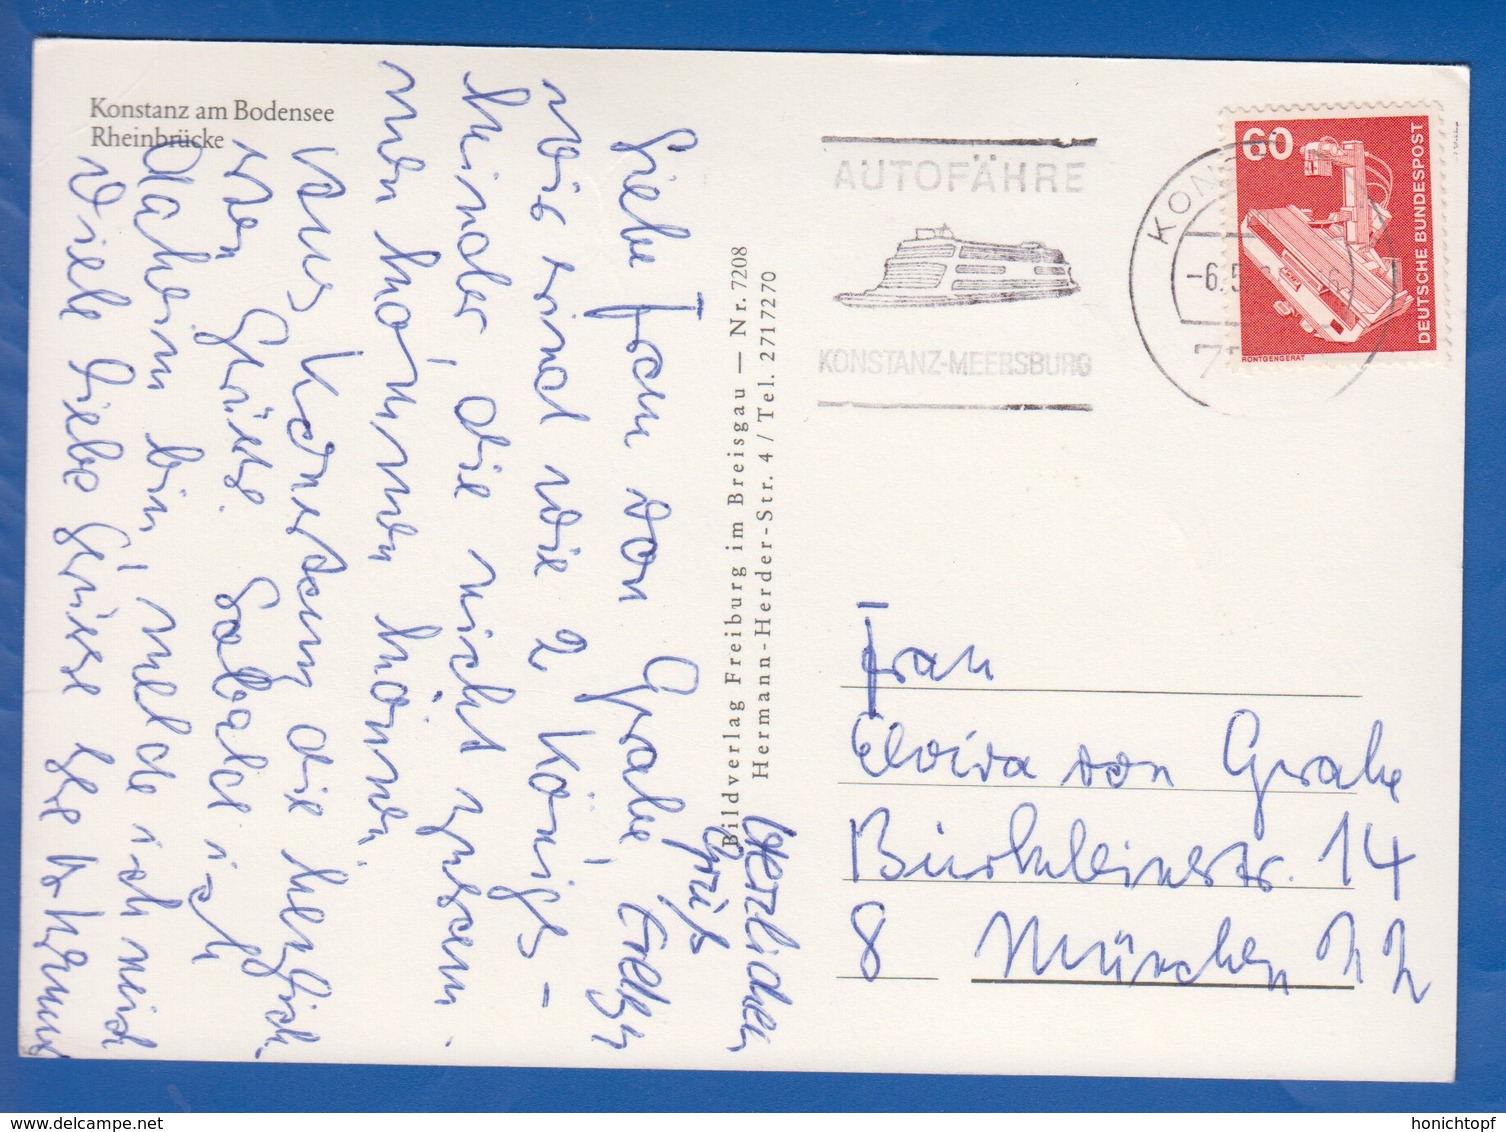 Konstanz am Bodensee
Rheinbrücke
Liebe Frau von Grabe,
wir sind wie 2 Königs-
kinder, die nicht zusam-
men kommen können.
Aus Konstanz die herzlich-
sten Grüße. Sobald ich
daheim bin, melde ich mich
Viele liebe Grüsse Ihre
Herzlichen
Gruß
Bildverlag Freiburg im Breisgau — Nr. 7208
Hermann-Herder-Str. 4 / Tel. 27177270
AUTOFÄHRE
KONSTANZ-MEERSBURG
KON
-6.5.
60
DEUTSCHE BUNDESPOST
RÖNTGENGERÄT
Frau
Elvira von Grabe
Bürkleinstr. 14
8 München 22
honichtopf